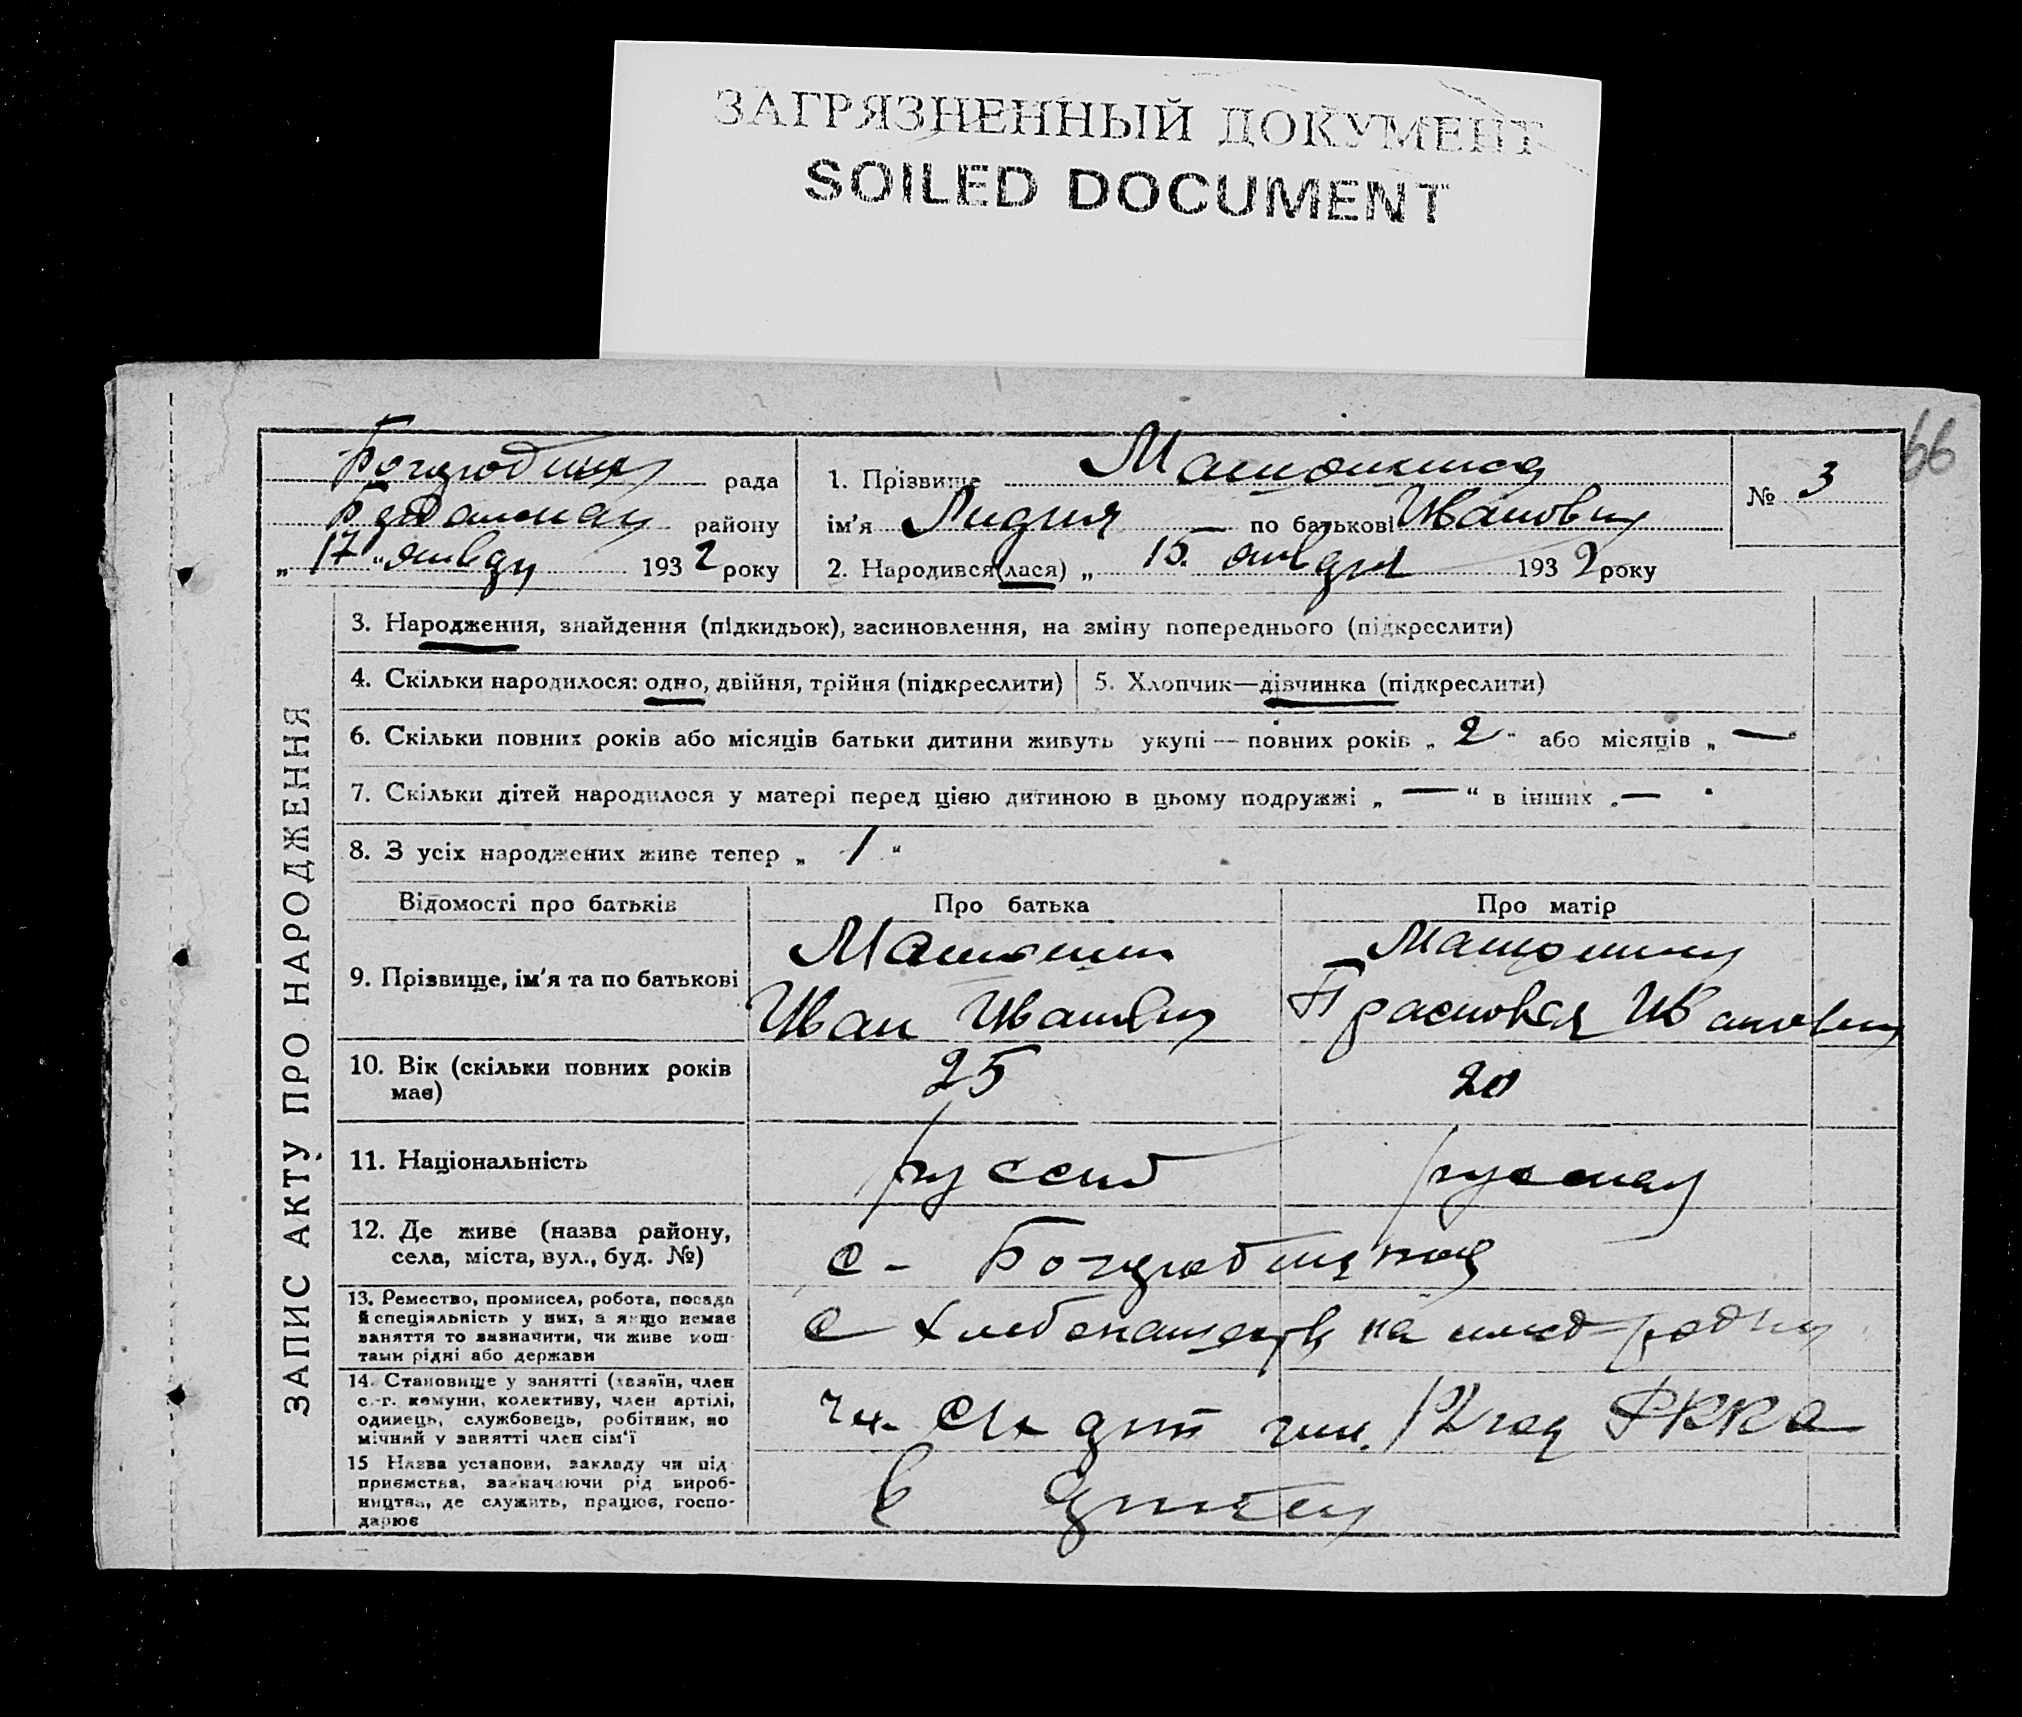 ЗАГРЯЗНЕННЫЙ ДОКУМЕНТ
SOILED DOCUMENT
66
рада
району
„ 17 " 193 2 року
1. Прізвище
ім'я Лидия — по батькові Ивановн
2. Народився(лася) „ 15. января 193 2 року
№ 3
ЗАПИС АКТУ ПРО НАРОДЖЕННЯ
3. Народження, знайдення (підкидьок), засиновлення, на зміну попереднього (підкреслити)
4. Скільки народилося: одно, двійня, трійня (підкреслити)
5. Хлопчик—дівчинка (підкреслити)
6. Скільки повних років або місяців батьки дитини живуть укупі — повних років „ 2 " або місяців „ — "
7. Скільки дітей народилося у матері перед цією дитиною в цьому подружжі „ — " в інших „ — "
8. З усіх народжених живе тепер „ 1 "
Відомості про батьків
Про батька
Про матір
9. Прізвище, ім'я та по батькові
Иван Иванович
Прасковья Ивановн
10. Вік (скільки повних років
має)
25
20
11. Національність
русский
русская
12. Де живе (назва району,
села, міста, вул., буд. №)
с -
13. Ремество, промисел, робота, посада
й спеціяльність у них, а якщо немає
заняття то зазначити, чи живе кош-
тами рідні або держави
14. Становище у занятті (хазяїн, член
с.-г. комуни, колективу, член артілі,
одинець, службовець, робітник, по
мічний у занятті член сім'ї
РККА
15 Назва установи, закладу чи під
приємства, зазначаючи рід вироб-
ництва, де служить, працює, госпо-
дарює
в